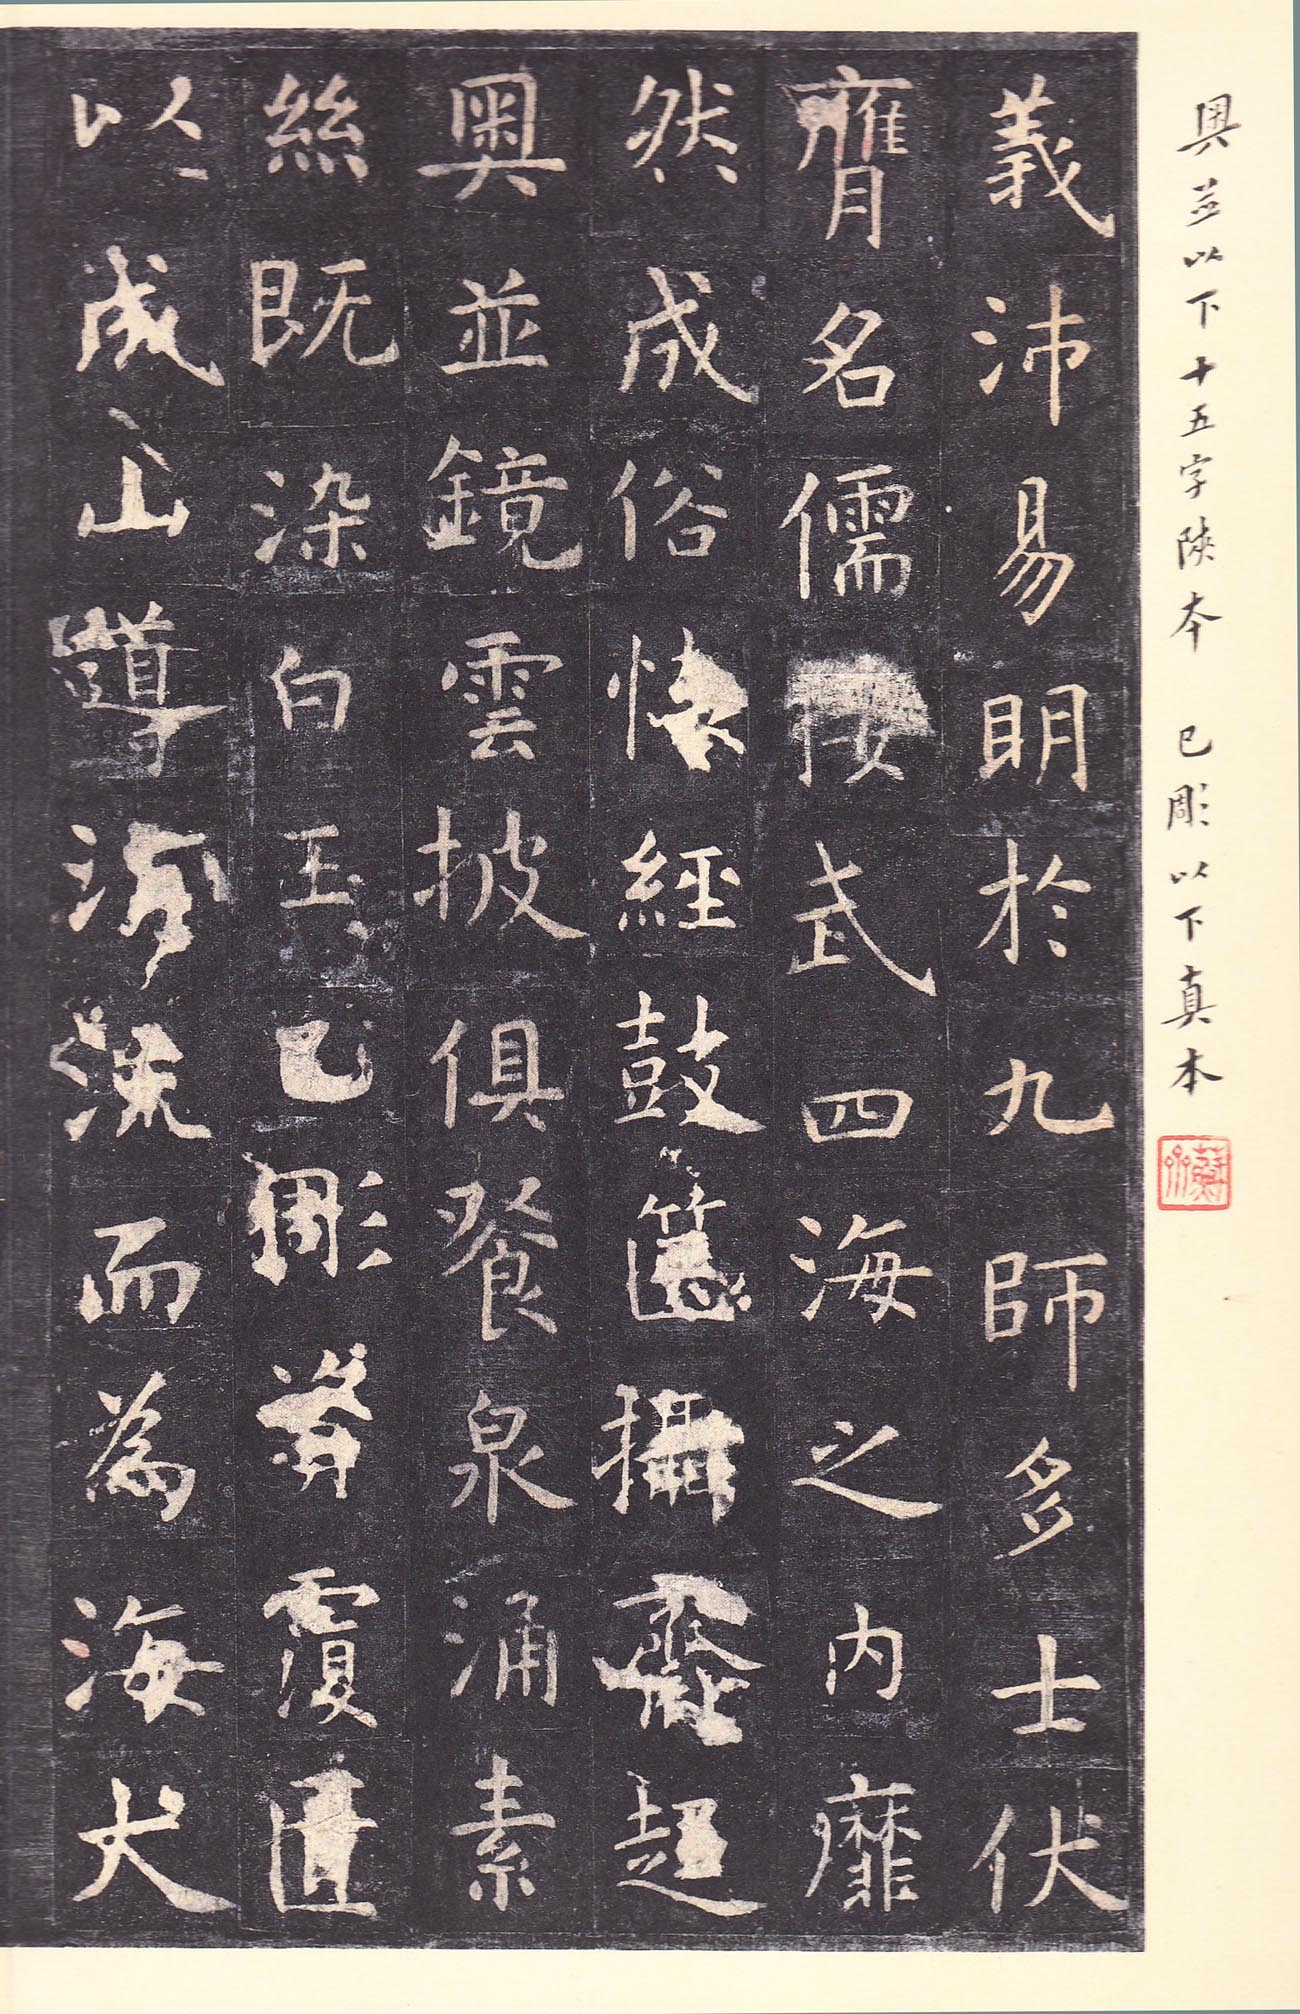 奧並以下十五字陝本 已彫以下真本
義沛易明於九師多士伏
膺名儒接武四海之内靡
然成俗懷經鼓篋攝齊趍
奧並鏡雲披俱餐泉涌素
絲既染白玉已彫資覆匱
以成山導涓流而為海大